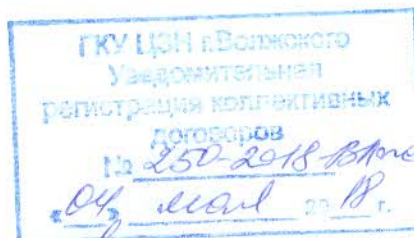 ГКУ ЦЗН г.Волжского
Уведомительная
регистрация коллективных
договоров
№ 250-2018-
«04» мая 2018 г.